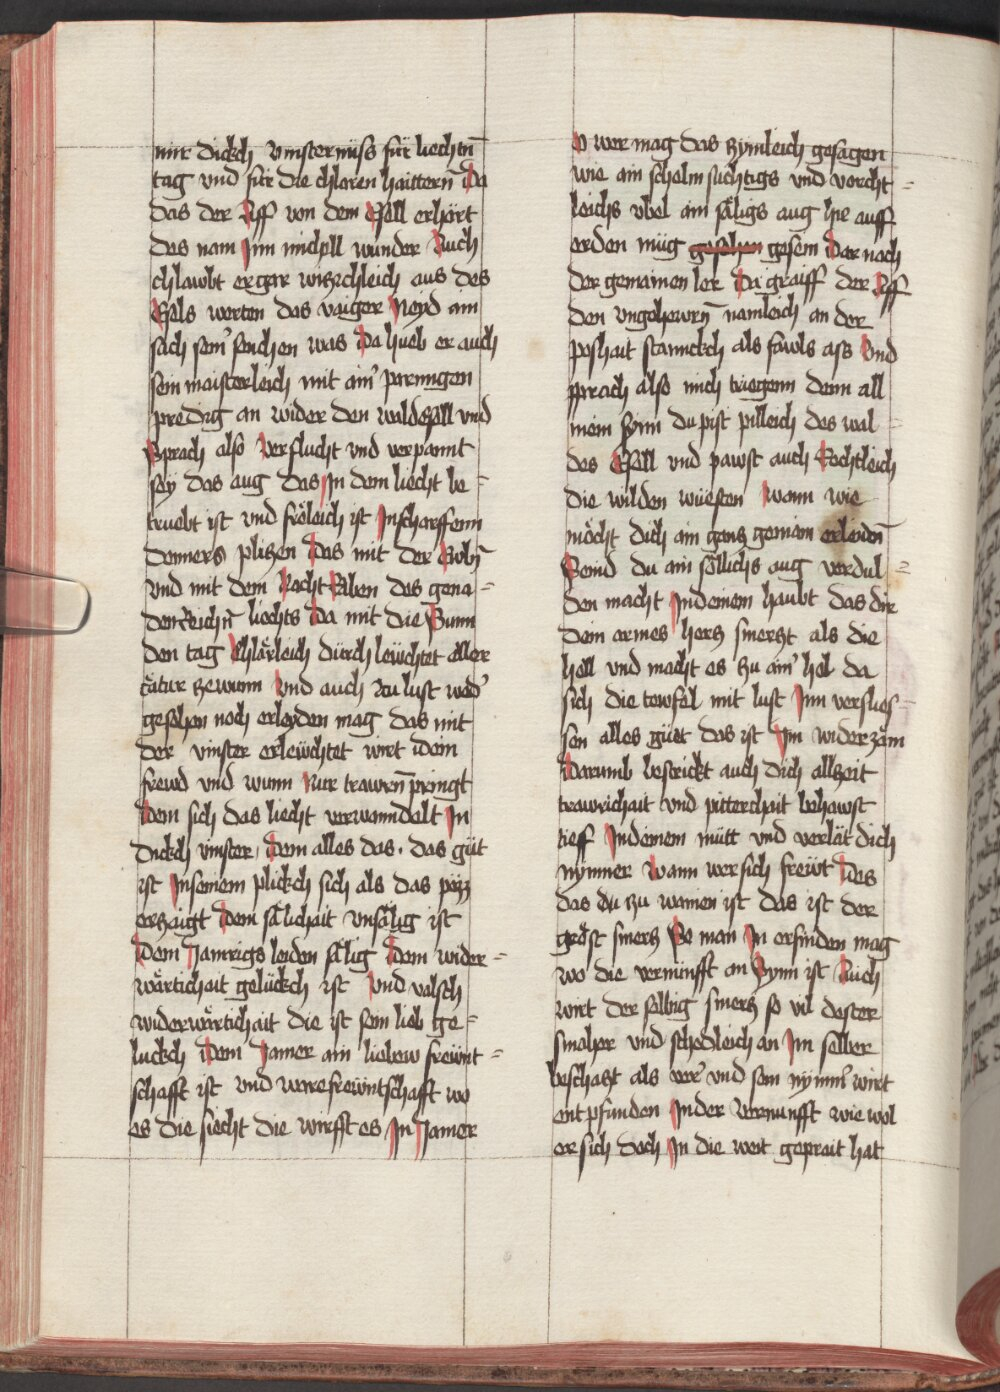 mir dickch vinsternüss für liechtn̄
tag vnd für die chloren haittern Da
das der Aff von dem Esell erhört
des nam Jm michell wunder Auch
chlawbt er gar wiczchleich aus des
Esels worten das vaiger Neyd ain
sach sein' seuchen was Da hueb er auch
sein maisterleich mit ain' prennigen
predig an wider den waldesell vnd
Sprach also Verflucht vnd verpannt
sey das aug das Jn dem liecht be-
truebt ist vnd fröleich ist Jn scharffenn
donners pliczen Das mit der
vnd mit dem Racht Raben des gena-
denreichn̄ liechts Da mit die Sunn
den tag Chlärleich dürch leüchtet aller
creatur ze wunn Vnd auch zu lust wed'
gesehen noch erleyden mag das mit
der vinster erleüchtet wirt dem
frewd vnd wunn Nur trawrn̄ pringt
Dem sich das liecht verwanndelt Jn
dickch vinster, Dem alles das. das güt
ist Jn seinem plickch sich als das pözz
erzaigt Dem sälichait vnsälig ist
Dem Jamrigs leiden sälig Dem wider-
wärtichait gelückch ist Vnd valsch
widerwärtichait die ist sein lieb ge-
luckch Dem Jamer ain liebew freünt-
schafft ist vnd were freüntschafft wo
es die siecht die wirfft es Jn Jamer
O wer mag das zymleich gesagen
wie ain schelm suchtigs vnd vorcht-
leichs vbel ain säligs aug hie auff
erden müg gesehen gesein Dar nach
der gemainen ler Da graiff der Aff
den vngehewrn̄ namleich an der
poshait stannckch als fawls ass Vnd
sprach also mich triegenn denn all
mein synn du pist pilleich des wal-
des Esell vnd pawst auch Rechtleich
die wilden wüesten Wann wie
möcht dich ain gancz gemain erleidn̄
Seind du ain söllichs aug verdul-
den macht Jn deinem haubt das dir
dein ormes hercz smerczt als die
hell vnd macht es zu ain' hol da
sich die tewfel mit lust Jnn verslies-
sen alles güet das ist Jm widerzäm
Darumb bestrickt auch dich allzeit
trawrichait vnd pitterchait behawst
tieff Jn deinem mütt vnd verlät dich
nymmer Wann wer sich frewt Des
das du zu wainen ist das ist der
gröst smercz So man Jn erfinden mag
wo die vernunfft an Synn ist Auch
wirt der selbig smercz so vil dester
smaher vnd schedleich an Jm selber
beschaczt als ver' vnd sein nymm' wirt
entpfunden Jn der vernunfft wie wol
er sich doch Jn die weit geprait hat